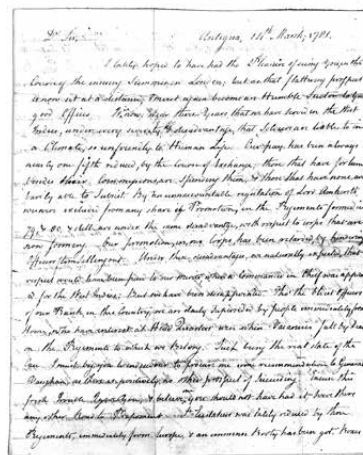 Dr Sir, Antigua, 14th March, 1781.
I lately hoped to have had the Pleasure of seeing you in the
Course of the ensuing Summer in London; but as that flattering prospect
is now set at a distance, I must again become an Humble to your
good Offices. It is now three Years that we have served in the West
Indies, under every severity & disadvantage, that Soldiers are liable to in
a Climate, so unfriendly to Human Life. Our pay has been always
nearly one fifth reduced, by the course of Exchange; those that have
are spending them, & those that have none are
hardly able to Subsist. By an unaccountable regulation of Lord Amherst's
we were excluded from any share of Promotion, in the Regiments formed in
79, & 80, & still are under the same disadvantage, with respect to corps that are
now forming. Our promotion, in our Corps, has been retarded, by
Officers from Under these disadvantages, we naturally expected, that
respect would have been paid to our when a Commander in Chief was
for the West Indies; But we have been disappointed. Tho' the oldest Officers
of our Rank, in this Country, we are daily superseded by people immediately from
Home, who have interest at when Vacancies fall by Death
in the Regiments to which we Belong. Such being the real state of the
Case I must beg you to endeavour to procure me some recommendation to General
Vaughan, as there is, positively, no other prospect of Succeeding. Excuse this
fresh Trouble I give you, & believe, you should not have had it, were there
any other Road to Preferment. St. Eustatius was lately reduced by three
Regiments, immediately from Europe, & an immense Booty has been got.